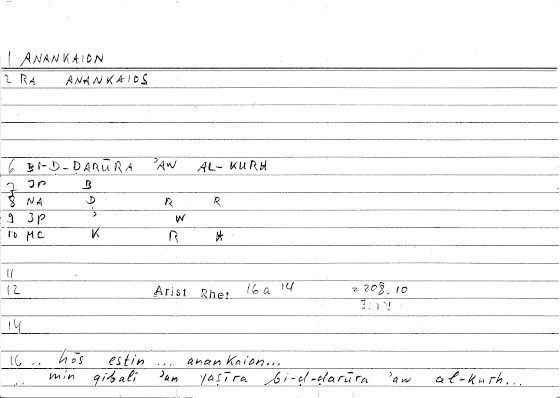 1 ANANKAION
2 RA ANANKAIOS
6 BI-D-DARŪRA 'AW AL-KURH
7 JP B
8 NA D R R
9 JP ' W
10 MC K R H
11
12 Arist Rhet 16a 14 = 208.10
14
16 .. hōs estin ... anankaion...
.. min qibali 'an yaṣīra bi-ḍ-ḍarūra 'aw al-kurh...